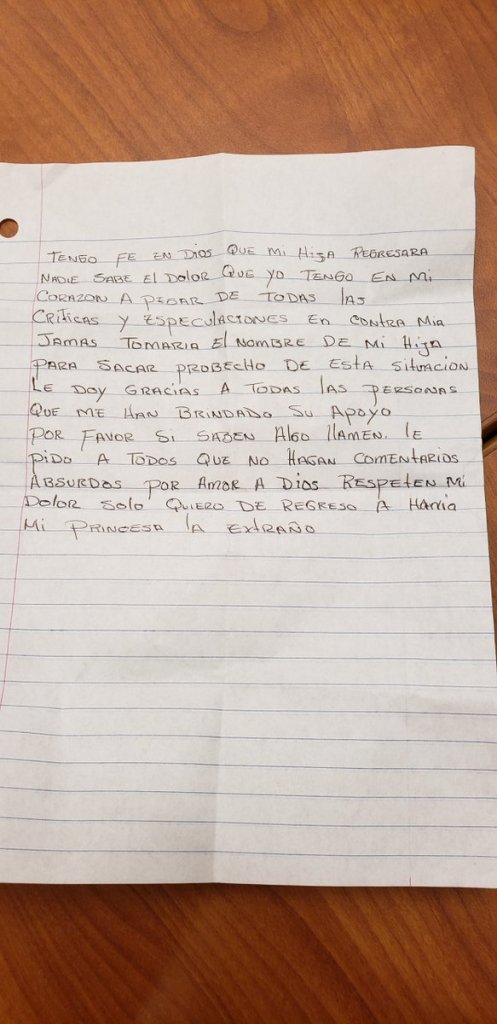 TENGO FE EN DIOS QUE MI HIJA REGRESARA
NADIE SABE El DOLOR QUE YO TENGO EN MI
CORAZON A PESAR DE TODAS lAS
CRITICAS Y ESPECULACIONES EN CONTRA MIA
JAMAS TOMARIA El NOMBRE DE MI HIJA
PARA SACAR PROBECHO DE ESTA SITUACION
LE DOY GRACIAS A TODAS lAS PERSONAS
QUE ME HAN BRINDADO SU APOYO
POR FAVOR SI SABEN AlGO llAMEN. lE
PIDO A TODOS QUE NO HAGAN COMENTARIOS
ABSURDOS POR AMOR A DIOS RESPETEN MI
DOLOR SOLO QUIERO DE REGRESO A HANIA
MI PRINCESA lA EXTRAÑO